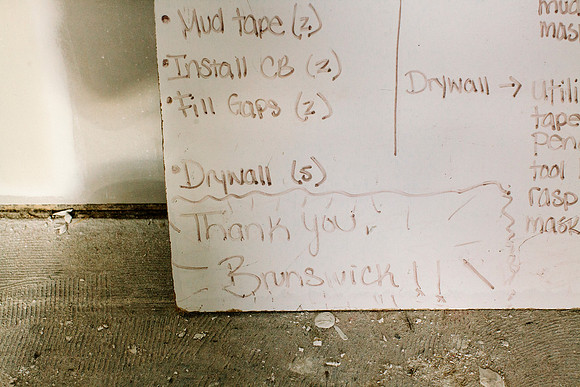 • Mud tape (2)
• Install CB (2)
• Fill Gaps (2)
• Drywall (5)
Thank you,
Brunswick!!
mud
mask
Drywall → utili
tape
pen
tool
rasp
mask